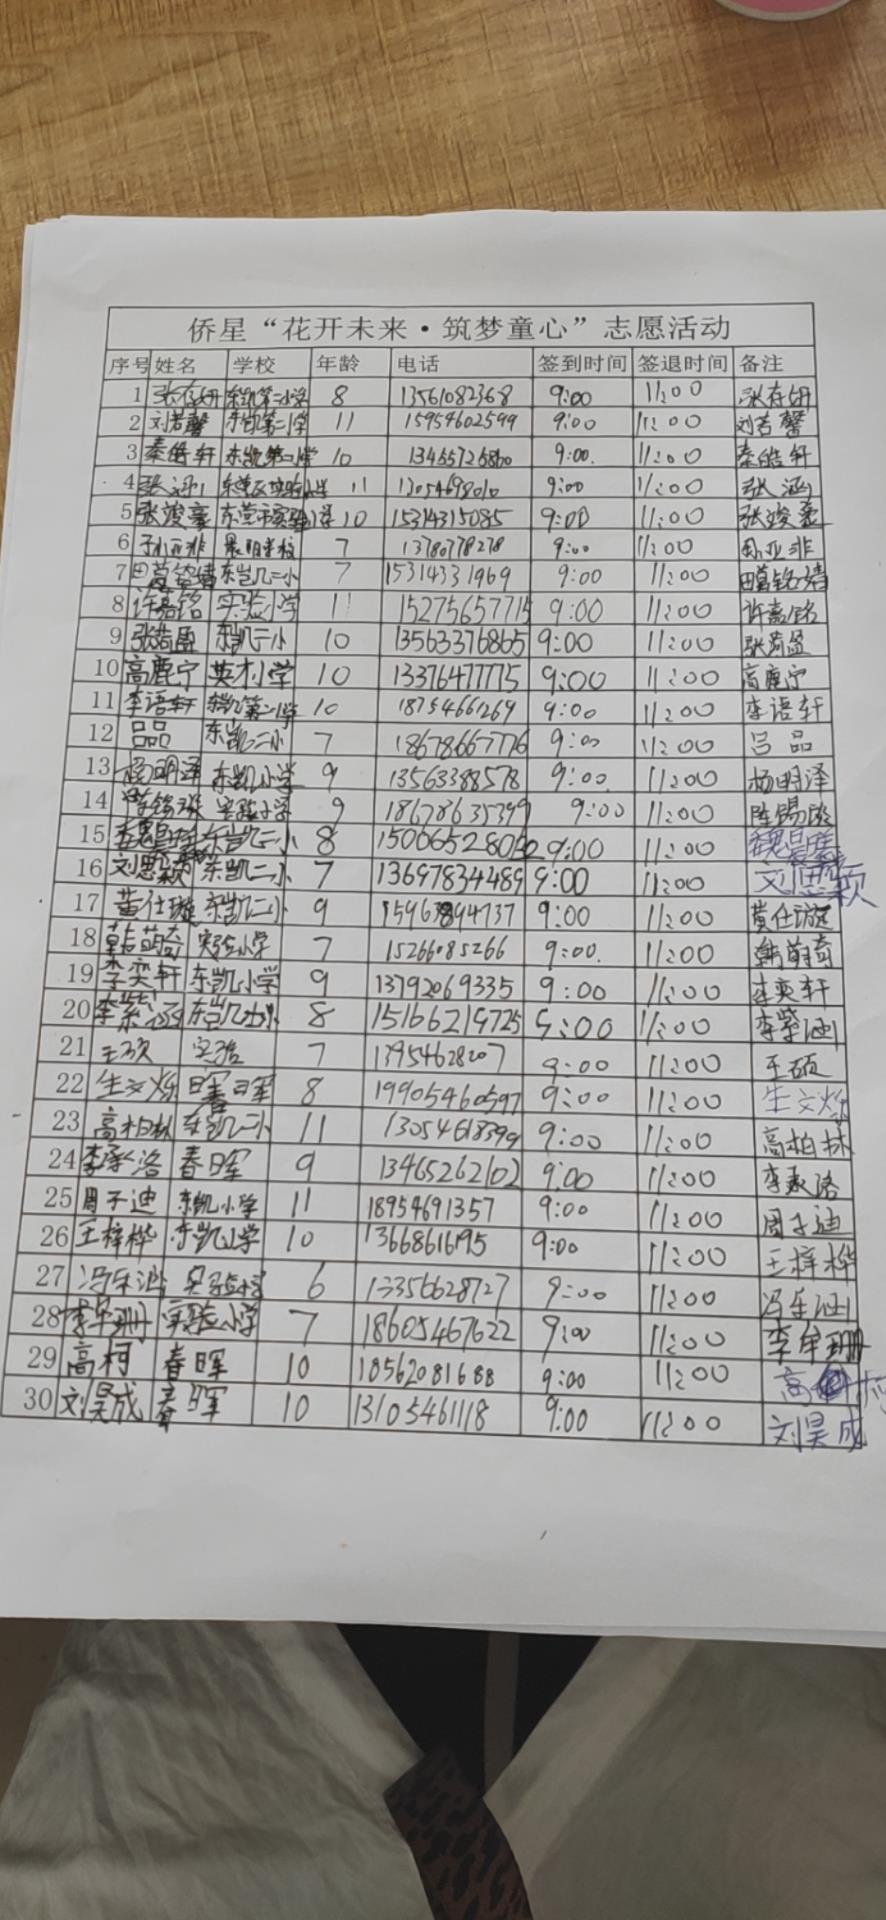 侨星“花开未来·筑梦童心”志愿活动
序号 姓名 学校 年龄 电话 签到时间 签退时间 备注
1 张存妍 东凯第二小学 8 13561082368 9:00 11:00 张存妍
2 刘若馨 东凯第二小学 11 15954602599 9:00 11:00 刘若馨
3 秦皓轩 东凯第二小学 10 9:00. 11:00 秦皓轩
4 张涵 11 13054698010 9:00 11:00 张涵
5 东营市实验小学 10 15314315085 9:00 11:00
6 7 13780778278 9:00 11:00
7 田葛铭婧 东凯二小 7 15314331969 9:00 11:00 田葛铭婧
8 许嘉铭 实验小学 11 15275657715 9:00 11:00 许嘉铭
9 东凯二小 10 13563376865 9:00 11:00
10 高鹿宁 英才小学 10 13376477775 9:00 11:00 高鹿宁
11 李语轩 东凯第二小学 10 18754661269 9:00 11:00 李语轩
12 吕品 东凯二小 7 18678667776 9:00 11:00 吕品
13 杨明泽 东凯小学 9 13563388578 9:00 11:00 杨明泽
14 实验小学 9 18678635399 9:00 11:00
15 东凯二小 8 9:00 11:00
16 刘思颖 东凯二小 7 13697834489 9:00 11:00 刘思颖
17 黄仕璇 东凯二小 9 15963894737 9:00 11:00 黄仕璇
18 韩萌奇 实验小学 7 15266085266 9:00. 11:00 韩萌奇
19 李奕轩 东凯小学 9 13792069335 9:00 11:00 李奕轩
20 李紫涵 8 15166219725 9:00 11:00 李紫涵
21 王硕 实验 7 13954628207 9:00 11:00 王硕
22 生文烁 春晖 8 19905460597 9:00 11:00 生文烁
23 高柏林 东凯二小 11 13054618399 9:00 11:00 高柏林
24 李承洛 春晖 9 13465262102 9:00 11:00 李承洛
25 周子迪 东凯小学 11 18954691357 9:00 11:00 周子迪
26 王梓桦 东凯小学 10 13668616195 9:00 11:00 王梓桦
27 冯乐涵 实验小学 6 13356628727 9:00 11:00 冯乐涵
28 实验小学 7 18605467622 9:00 11:00
29 高柯 春晖 10 18562081688 9:00 11:00 高柯
30 刘昊成 春晖 10 13105461118 9:00 11:00 刘昊成